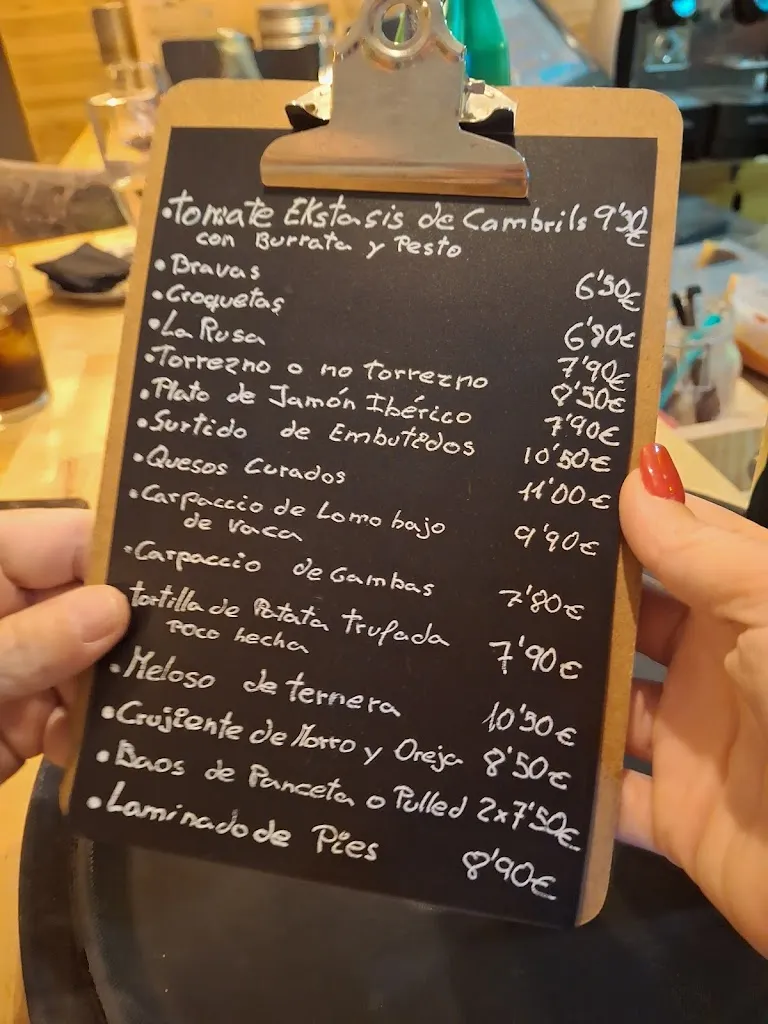 •Tomate Ekstasis de Cambrils 9'30€
con Burrata y Pesto
•Bravas 6'50€
•Croquetas 6'80€
•La Rusa 7'90€
•Torrezno o no torrezno 8'50€
•Plato de Jamón Ibérico 7'90€
•Surtido de Embutidos 10'50€
•Quesos Curados 11'00€
•Carpaccio de Lomo bajo 9'90€
de vaca
•Carpaccio de Gambas 7'80€
tortilla de Patata trufada 7'90€
poco hecha
•Meloso de ternera 10'50€
•Crujiente de Morro y Oreja 8'50€
•Baos de Panceta o Pulled 2x7'50€
•Laminado de Pies 8'90€